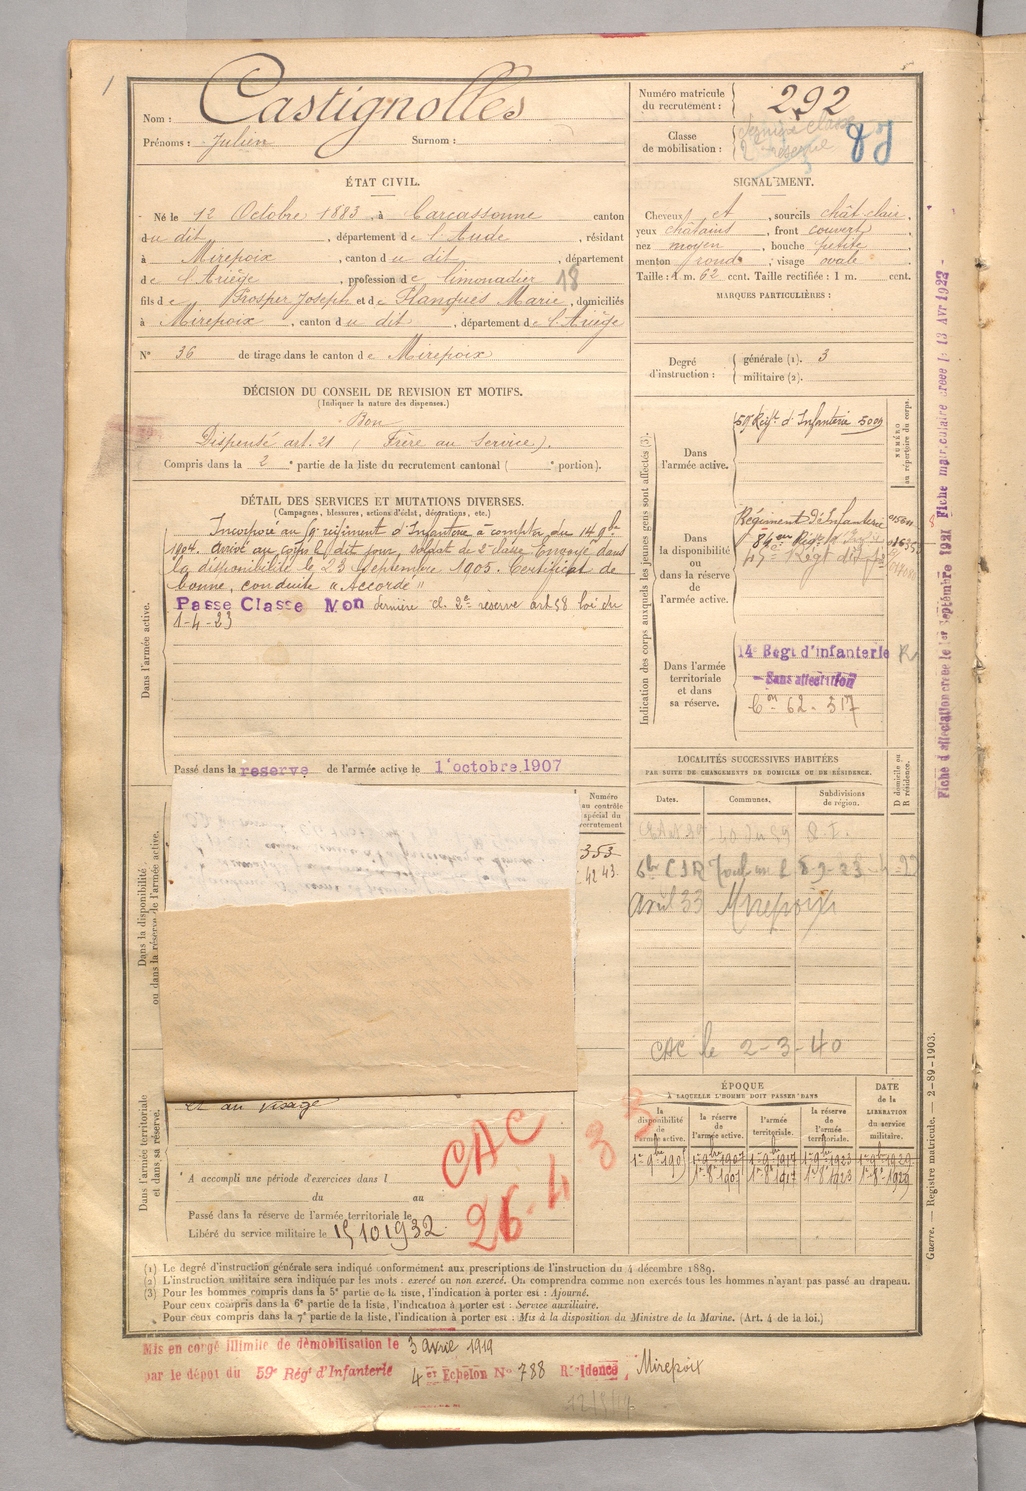 Nom : Castignolles
Prénoms : Julien Surnom :
Numéro matricule du recrutement : 292
Classe de mobilisation :
ÉTAT CIVIL.
Né le 12 Octobre 1883, à Carcassonne canton
du dit, département de l'Aude, résidant
à Mirepoix, canton du dit, département
de l'Ariège, profession de limonadier 18
fils de Prosper Joseph et de Planques Marie, domiciliés
à Mirepoix, canton du dit, département de l'Ariège
N° 36 de tirage dans le canton de Mirepoix
SIGNALEMENT.
Cheveux et, sourcils chât clair,
yeux châtains, front couvert,
nez moyen, bouche petite
menton rond, visage ovale
Taille : 1 m. 62 cent. Taille rectifiée : 1 m. cent.
MARQUES PARTICULIÈRES :
Degré d'instruction : générale (1). 3
militaire (2).
DÉCISION DU CONSEIL DE REVISION ET MOTIFS.
(Indiquer la nature des dispenses.)
Bon
Dispensé art. 21 (Frère au service).
Compris dans la 2e partie de la liste du recrutement cantonal ( e portion).
DÉTAIL DES SERVICES ET MUTATIONS DIVERSES.
(Campagnes, blessures, actions d'éclat, décorations, etc.)
Dans l'armée active.
Incorporé au 59e régiment d'Infanterie à compter du 14 9bre
1904. arrivé au corps le dit jour, soldat de 2e classe. Envoyé dans
la disponibilité le 23 Septembre 1905. Certificat de
bonne conduite "Accordé"
Passe Classe Mon dernière cl. 2e réserve art 58 loi du
1-4-23
Passé dans la reserve de l'armée active le 1 octobre 1907
Indication des corps auxquels les jeunes gens sont affectés (3).
NUMÉRO au répertoire du corps.
Dans l'armée active.
59 Régt d'Infanterie 5009
Dans la disponibilité ou dans la réserve de l'armée active.
Régiment d'Infanterie
Dans l'armée territoriale et dans sa réserve.
14e Regt d'infanterie
Sans affectation
Con 62-317
LOCALITÉS SUCCESSIVES HABITÉES
PAR SUITE DE CHANGEMENTS DE DOMICILE OU DE RÉSIDENCE.
Dates. Communes. Subdivisions de région. D domicile ou R résidence.
Avril 33 Mirepoix
CAC le 2-3-40
Dans la disponibilité ou dans la réserve de l'armée active.
Numéro au contrôle spécial du recrutement
353
4243
Dans l'armée territoriale et dans sa réserve.
et au visage
CAC
26.4
3
3
A accompli une période d'exercices dans l
du au
Passé dans la réserve de l'armée territoriale le
Libéré du service militaire le 15 10 1932
ÉPOQUE
À LAQUELLE L'HOMME DOIT PASSER DANS
la disponibilité de l'armée active. la réserve de l'armée active. l'armée territoriale. la réserve de l'armée territoriale. DATE de la LIBÉRATION du service militaire.
1er 9bre 1907 1er 9bre 1917 1er 9bre 1923 1er 9bre 1929
1er 8bre 1907 1er 8bre 1917 1er 8bre 1923 1er 8bre 1929
(1) Le degré d'instruction générale sera indiqué conformément aux prescriptions de l'instruction du 4 décembre 1889.
(2) L'instruction militaire sera indiquée par les mots : exercé ou non exercé. On comprendra comme non exercés tous les hommes n'ayant pas passé au drapeau.
(3) Pour les hommes compris dans la 5e partie de la liste, l'indication à porter est : Ajourné.
Pour ceux compris dans la 6e partie de la liste, l'indication à porter est : Service auxiliaire.
Pour ceux compris dans la 7e partie de la liste, l'indication à porter est : Mis à la disposition du Ministre de la Marine. (Art. 4 de la loi.)
Mis en congé illimité de démobilisation le 3 avril 1919
par le dépôt du 59e Régt d'Infanterie 4er Echelon N° 788 Résidence, Mirepoix
Guerre. — Registre matricule. — 2-89-1903.
Fiche d'affectation créée le 1er Septembre 1921 Fiche matriculaire créée le 13 Avr 1922